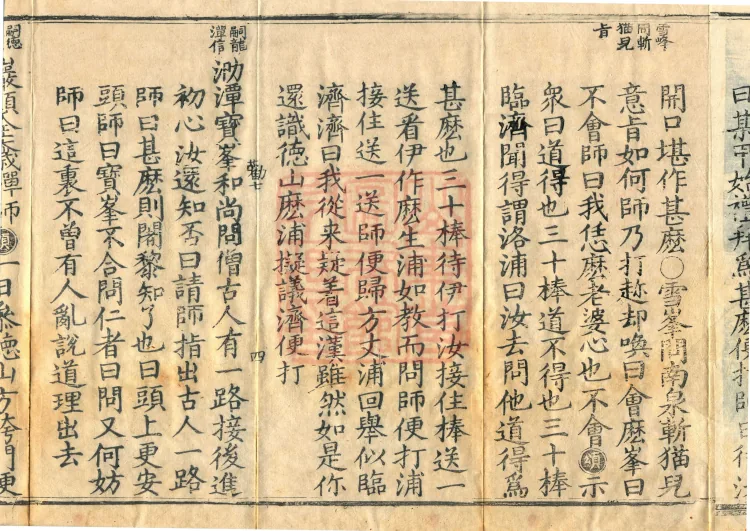 曰某甲始禮拜爲甚麽便打師曰待汝
雪峰
問斬
猫兒
旨
開口堪作甚麽○雪峯問南泉斬猫兒
意旨如何師乃打趂却喚曰會麽峯曰
不會師曰我恁麽老婆心也不會頌示
衆曰道得也三十棒道不得也三十棒
臨濟聞得謂洛浦曰汝去問他道得爲
甚麽也三十棒待伊打汝接住棒送一
送看伊作麽生浦如教而問師便打浦
接住送一送師便歸方丈浦回舉似臨
濟濟曰我從来疑着這漢雖然如是你
還識德山麽浦擬議濟便打
勸七 四
嗣龍
潭信
泐潭寶峯和尚問僧古人有一路接後進
初心汝還知否曰請師指出古人一路
師曰甚麽則闍黎知了也曰頭上更安
頭師曰寶峯不合問仁者曰問又何妨
師曰這裏不曾有人亂說道理出去
嗣德
巖頭全奯禪師頌一日叅德山方跨門便